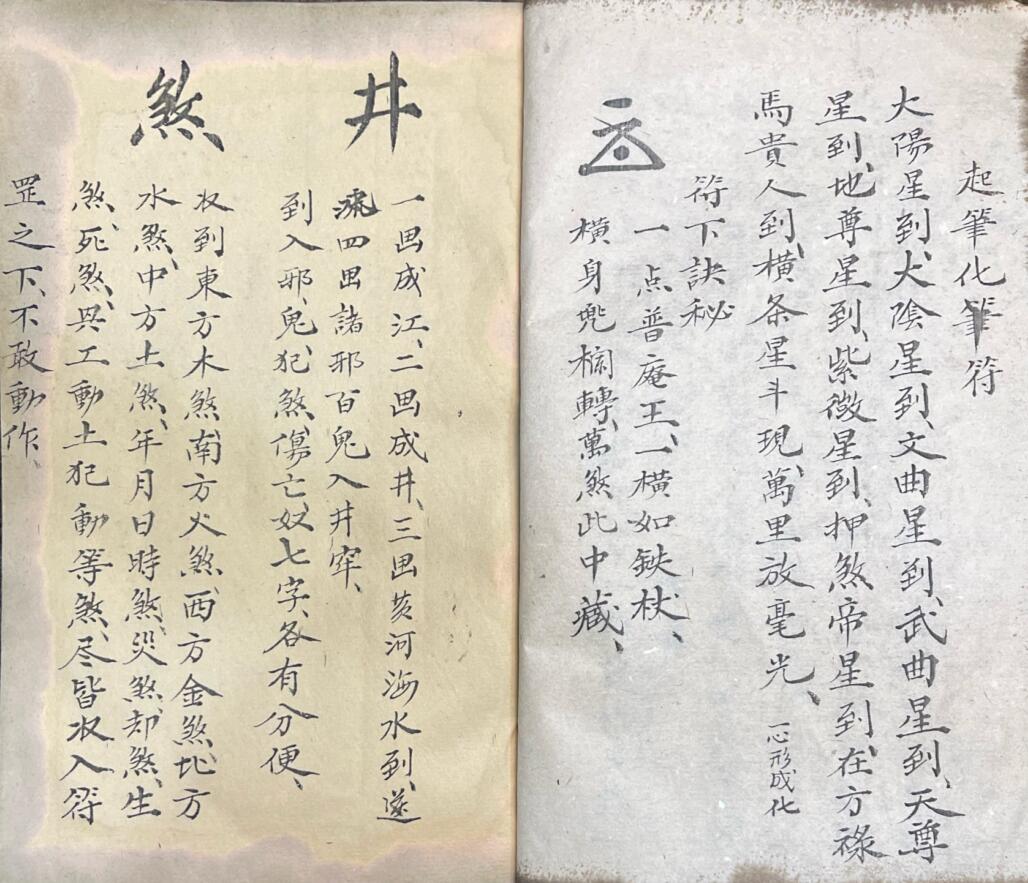 起筆化筆符
太陽星到、太陰星到、文曲星到、武曲星到、天尊
星到、地尊星到、紫微星到、押煞帝星到、在方祿
馬貴人到、橫条星斗現、萬里放毫光、一心形成化
符下訣秘
一点普庵王、一橫如鉄杖、
橫身兜轉、萬煞此中藏、
井煞
一画成江、二画成井、三画黃河海水到、遂
流四画諸邪百鬼入井穽、
到入邪鬼、犯煞、傷亡、奴七字、各有分便、
收到東方木煞、南方火煞、西方金煞、北方
水煞、中方土煞、年月日時煞、災煞、却煞、生
煞、死煞、與工動土犯動等煞、尽皆收入符
罡之下、不敢動作、